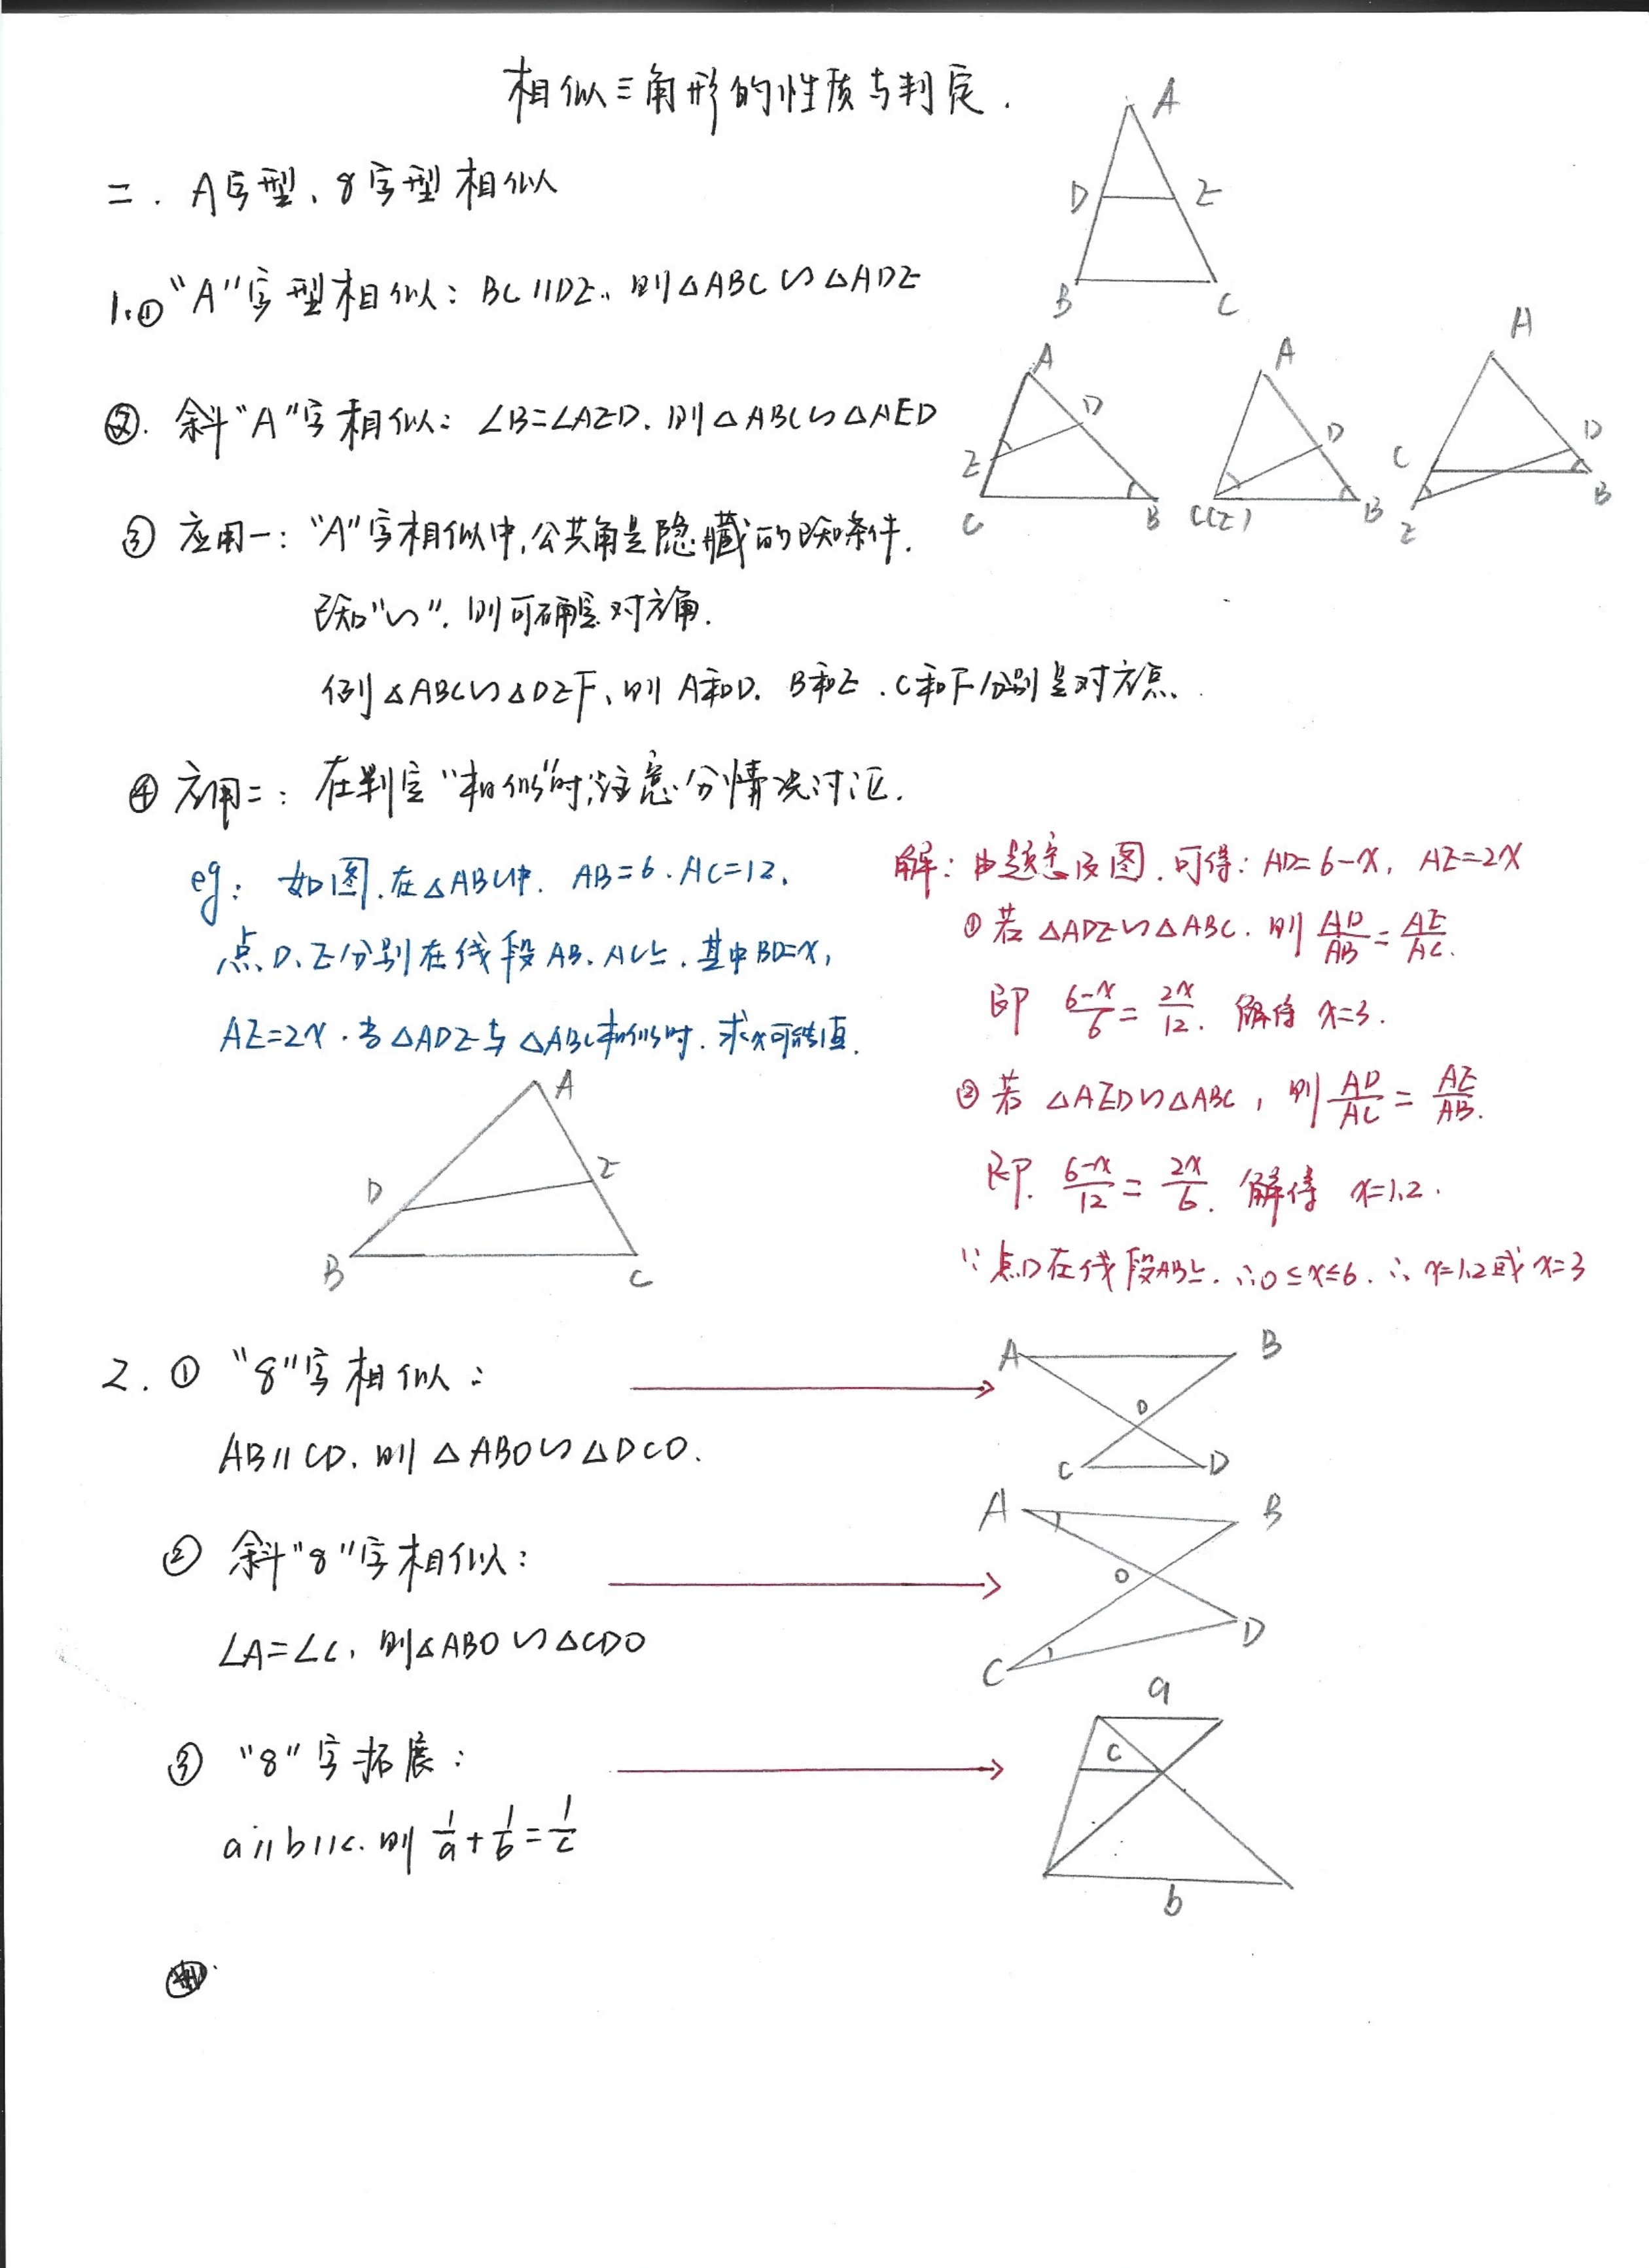 相似三角形的性质与判定.
二. A字型、8字型相似
1.① "A"字型相似: BC∥DE, 则△ABC∽△ADE
A
D E
B C
②. 斜"A"字相似: ∠B=∠AED. 则△ABC∽△AED
A
D
E
C B
A
D
C(E) B
A
D
C
B
E
③ 应用一: "A"字相似中,公共角是隐藏的已知条件.
已知"∽". 则可确定对应角.
例△ABC∽△DEF, 则 A和D. B和E. C和F分别是对应点.
④ 应用二: 在判定"相似"时,注意分情况讨论.
eg: 如图.在△ABC中. AB=6. AC=12.
点D、E分别在线段AB、AC上. 其中BD=x,
AE=2x. 当△ADE与△ABC相似时. 求x可能值.
A
E
D
B C
解: 由题意及图. 可得: AD=6-x, AE=2x
① 若 △ADE∽△ABC. 则 AD/AB = AE/AC.
即 6-x/6 = 2x/12. 解得 x=3.
② 若 △AED∽△ABC, 则 AD/AC = AE/AB.
即. 6-x/12 = 2x/6. 解得 x=1.2.
∵点D在线段AB上. ∴0≤x≤6. ∴x=1.2或x=3
2. ① "8"字相似:
AB∥CD. 则 △ABO∽△DCO.
A B
O
C D
② 斜"8"字相似:
∠A=∠C, 则△ABO∽△CDO
A B
O
D
C
③ "8"字拓展:
a∥b∥c. 则 1/a + 1/b = 1/c
a
c
b